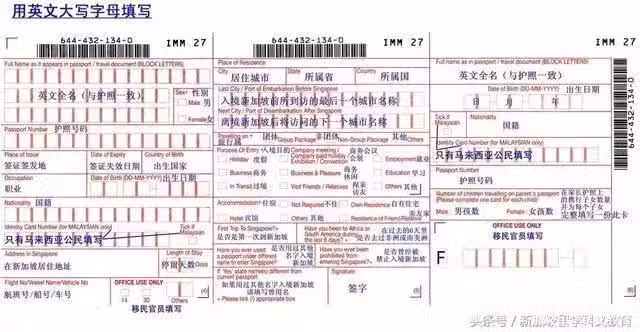 用英文大写字母填写
644-432-134-0
IMM 27
Full Name as it appears in passport / travel document (BLOCK LETTERS)
英文全名（与护照一致）
Sex 性别
Male 男
Female 女
Passport Number 护照号码
Place of Issue
签证签发地
Date of Expiry
签证失效日期
Country of Birth
出生国家
Occupation
职业
Date of Birth (DD-MM-YYYY) 出生日期
Nationality 国籍
Identity Card Number (for MALAYSIAN only)
只有马来西亚公民填写
Tick if Malaysian
Address in Singapore
在新加坡居住地址
Length of Stay
停留天数
Days
Flight No/Vessel Name/Vehicle No
航班号/船号/车号
OFFICE USE ONLY
14
30
Others
移民官员填写
644-432-134-0
IMM 27
Place of Residence
City
居住城市
State
所属省
Country
所属国
Last City / Port of Embarkation Before Singapore
入境新加坡前所到访的最后一个城市名称
Next City / Port of Disembarkation After Singapore
离境新加坡后将访问的下一个城市名称
Travelling on
旅行属
团体
Group Package
非团体
Non-Group Package
其他
Others
Purpose Of Entry 入境目的
Holiday 度假
Business 商务
In Transit 过境
Company meeting / Company paid holiday / Exhibition / Convention
商务会议
会展
Business & Pleasure 商务休闲
Visit Friends / Relatives 探亲访友
Employment 就业
Education 学习
Others 其他
Accommodation 住宿
Hotel 宾馆
Not Required 不住
Others 其他
Own Residence 自有住宅
Residence of Friend/Relative
亲友家
First Trip To Singapore?
是否是第一次到新加坡
Have you been to Africa or South America during the last 6 days?
在过去的6天里
是否去过非洲或南美洲
Have you ever used a passport under a different name to enter Singapore?
是否用过其他名字入境新加坡
Have you ever been prohibited from entering Singapore?
是否曾经被禁止入境新加坡
If 'Yes' state name(s) different from current passport.
如果用过其他名字入境新加坡
请填写曾用名
Please tick (√) appropriate box
Signature
签字
644-432-134-0
IMM 27
Full name as in passport / travel document (BLOCK LETTERS)
英文全名（与护照一致）
Date of Birth (DD-MM-YYYY) 出生日期
日 月 年
Tick if Malaysian
Nationality
国籍
Identity Card Number (for MALAYSIAN only)
只有马来西亚公民填写
Passport Number
护照号码
Number of children travelling on parent's passport
(Please complete one card for each child)
在家长护照上的携行子女数量
并为每个子女完整填写一份此卡
Male 男孩数
Female 女孩数
OFFICE USE ONLY
移民官员填写
F
644-432-134-0
头条号／新加坡留学科文教育